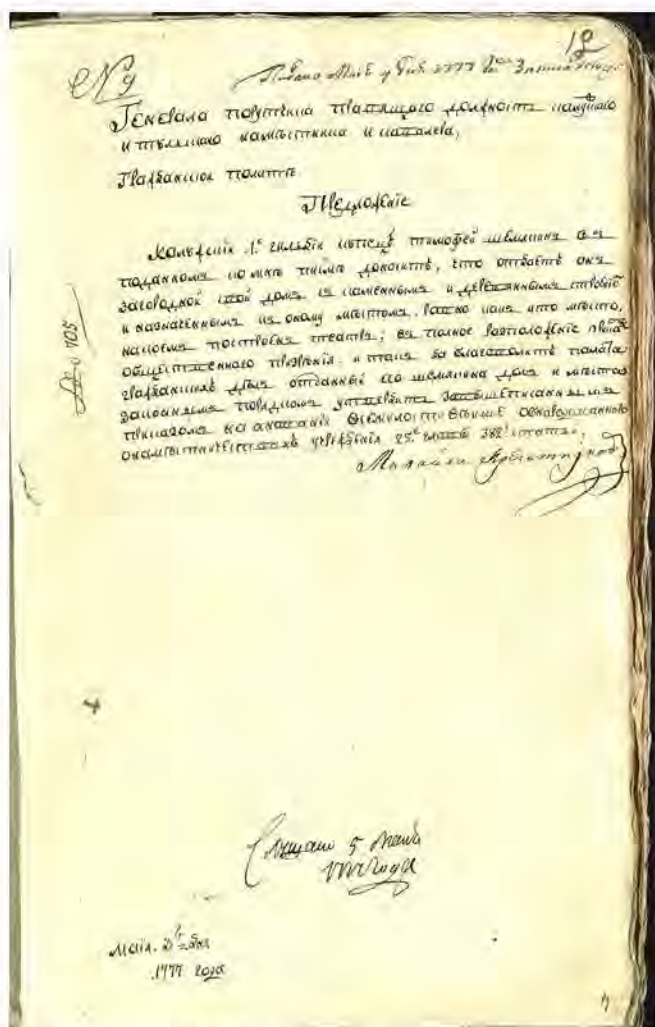 12
№ 9
Подано Маія 4 дня 1777 года
Генерала порутчика правящаго должность калужскаго
и тульскаго намѣстника и кавалера,
Гражданской полатѣ
Предложеніе
Калужскій 1й гильдіи купецъ тимофей шемякинъ въ
поданномъ ко мнѣ письмѣ доноситъ, что отдаетъ онъ
загородной свой домъ съ каменнымъ и деревяннымъ строеніемъ
и назначеннымъ къ оному мѣстомъ, равно какъ и то мѣсто,
на коемъ построенъ театръ; въ полное расположеніе приказа
общественнаго призрѣнія. и такъ да благоволитъ палата
гражданскихъ дѣлъ отданный его шемякина домъ и мѣста
законнымъ порядкомъ утвердить за вышеписаннымъ
приказомъ на основаніи
о намѣстничествахъ учрежденія 25й главы 382й статьи,
Михайла Кречетников
№ 705
Слушано 5 маия
1777 года
Маія. 2го дня
1777 года